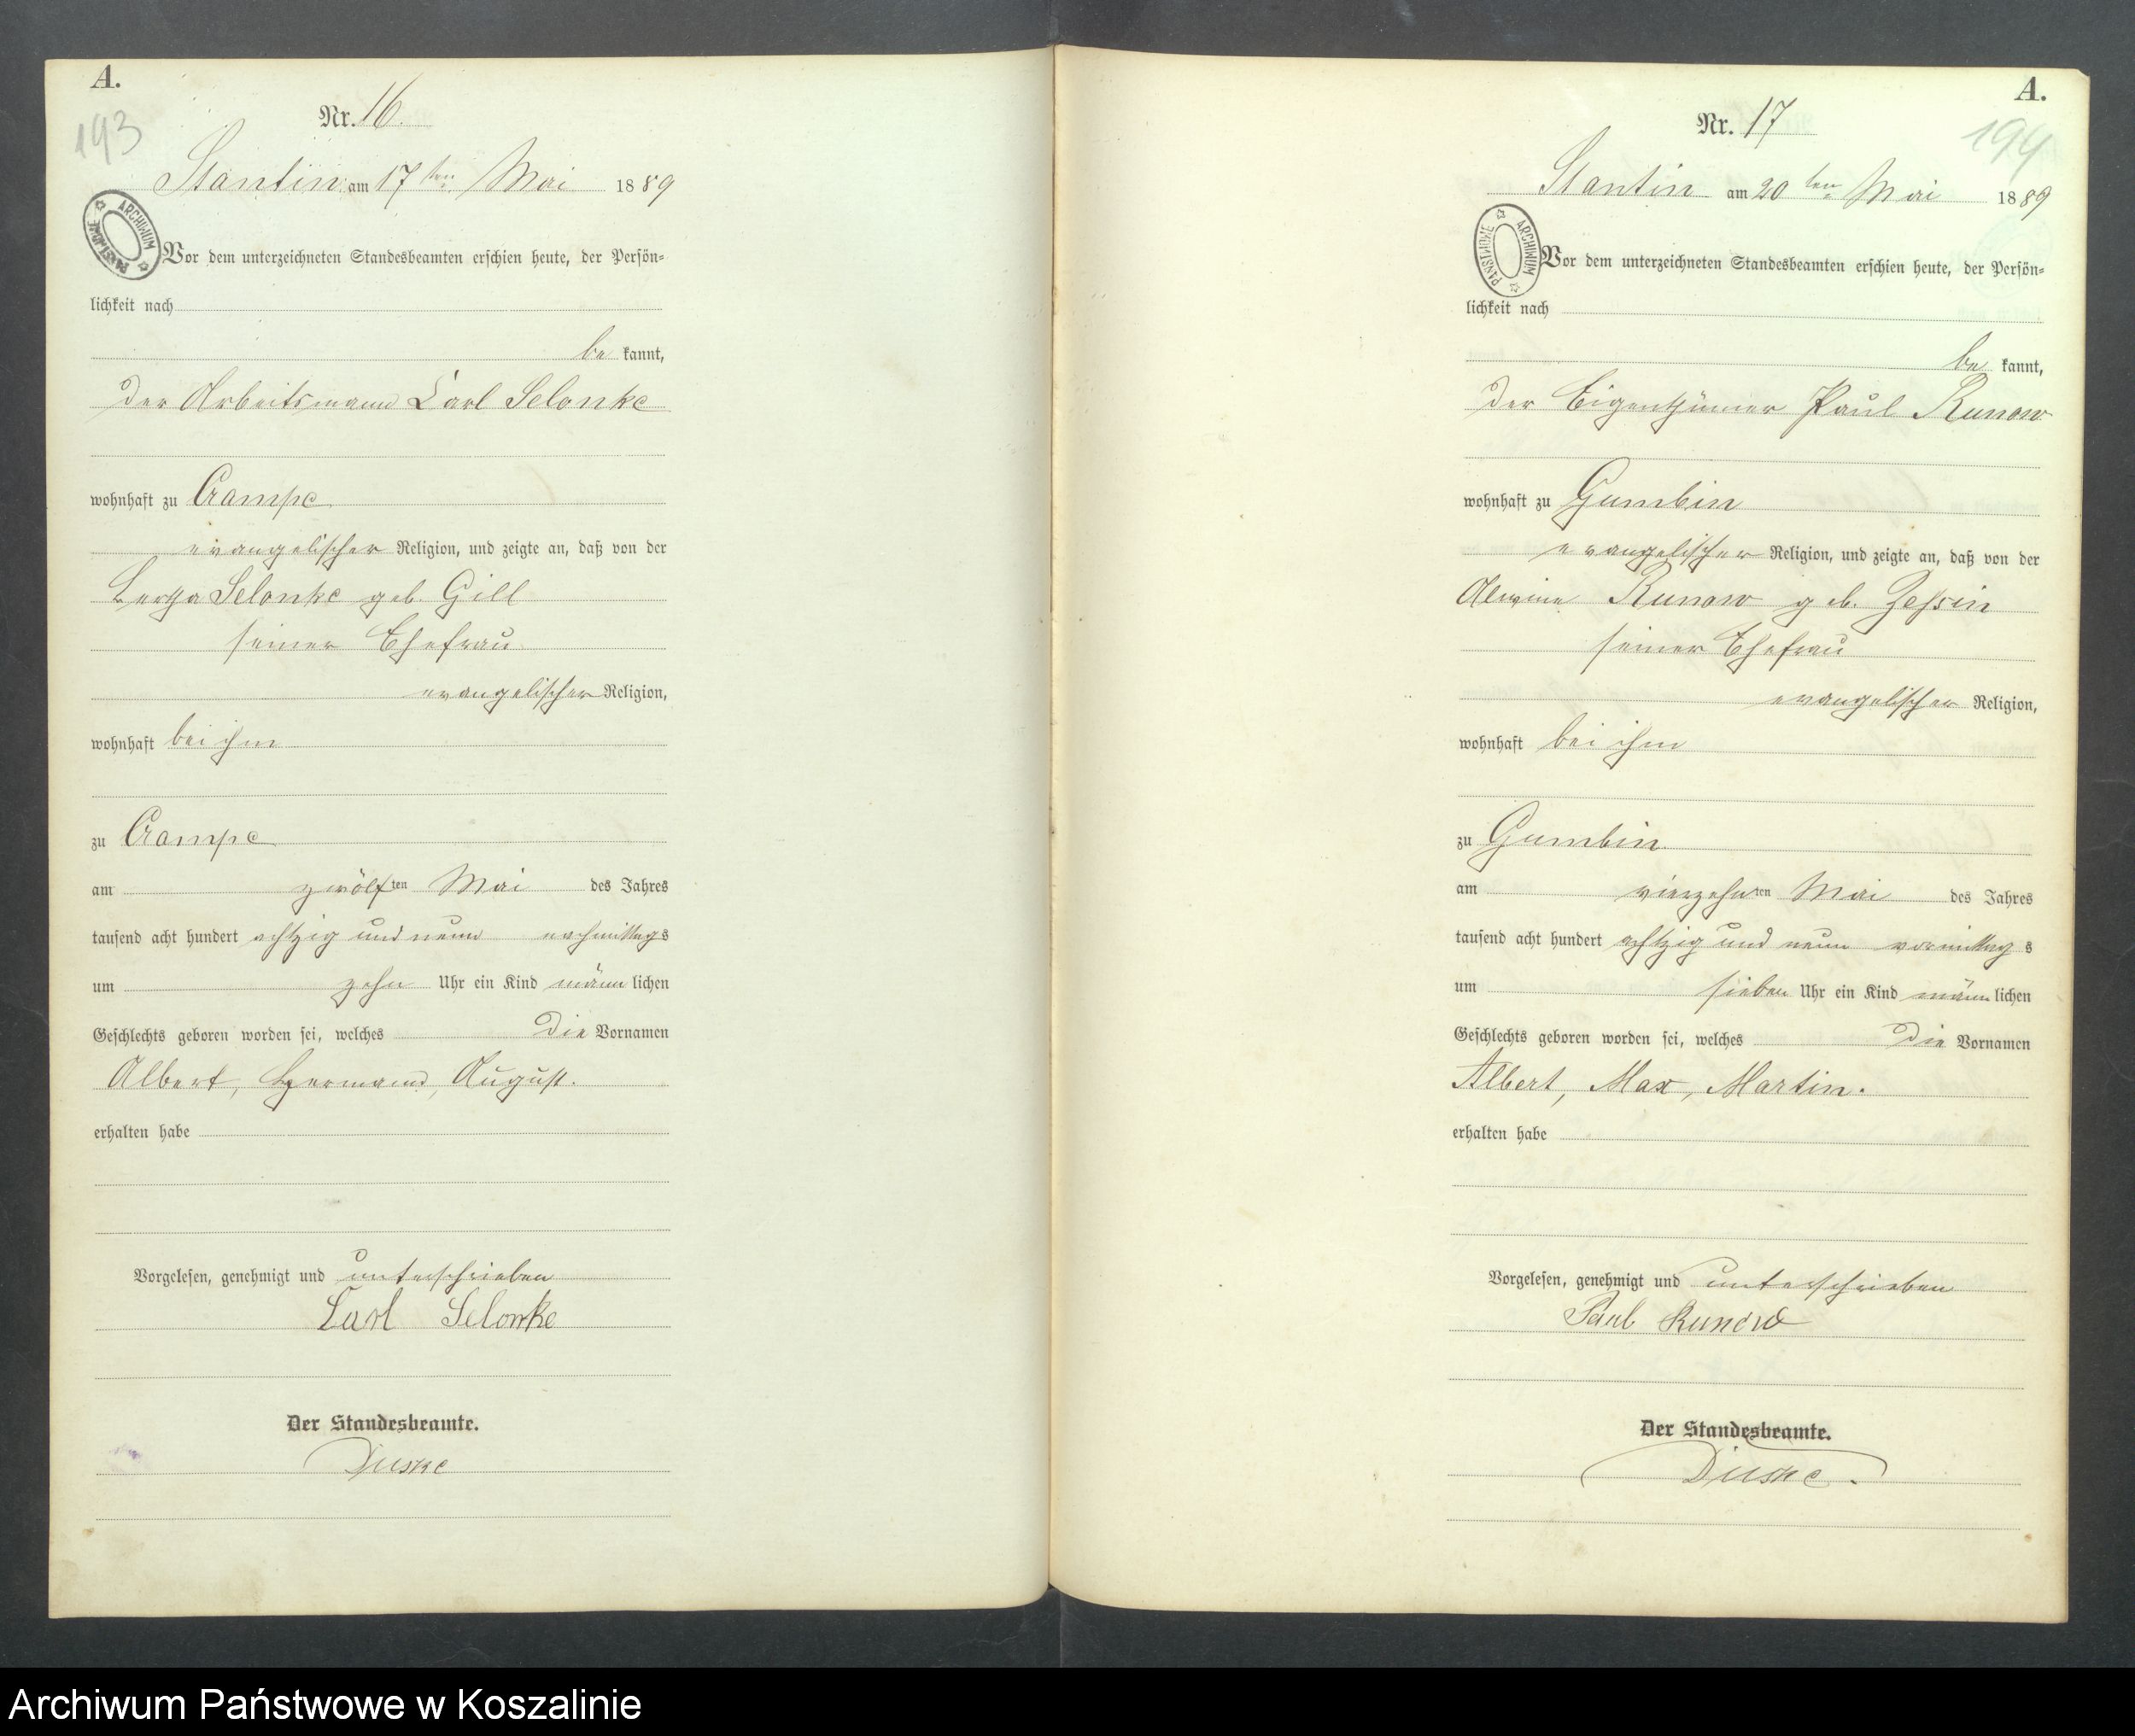 A.
193
Nr. 16.
Stantin am 17ten Mai 1889
ARCHIWUM PAŃSTWOWE
Vor dem unterzeichneten Standesbeamten erschien heute, der Persön-
lichkeit nach
be kannt,
der Arbeitsmann Carl Selonke
wohnhaft zu Crampe
evangelischer Religion, und zeigte an, daß von der
Selonke geb. Gill
seiner Ehefrau
evangelischer Religion,
wohnhaft bei ihm
zu Crampe
am zwölften Mai des Jahres
tausend acht hundert achtzig und neun nachmittags
um zehn Uhr ein Kind männlichen
Geschlechts geboren worden sei, welches die Vornamen
Albert, Hermann, August.
erhalten habe
Vorgelesen, genehmigt und unterschrieben
Carl Selonke
Der Standesbeamte.
Duske
A.
194
Nr. 17
Stantin am 20ten Mai 1889
ARCHIWUM PAŃSTWOWE
Vor dem unterzeichneten Standesbeamten erschien heute, der Persön-
lichkeit nach
be kannt,
der Eigenthümer Paul Runow
wohnhaft zu Gumbin
evangelischer Religion, und zeigte an, daß von der
Alwine Runow geb. Zessin
seiner Ehefrau
evangelischer Religion,
wohnhaft bei ihm
zu Gumbin
am vierzehnten Mai des Jahres
tausend acht hundert achtzig und neun vormittags
um sieben Uhr ein Kind männlichen
Geschlechts geboren worden sei, welches die Vornamen
Albert, Max, Martin.
erhalten habe
Vorgelesen, genehmigt und unterschrieben
Paul Runow
Der Standesbeamte.
Duske.
Archiwum Państwowe w Koszalinie